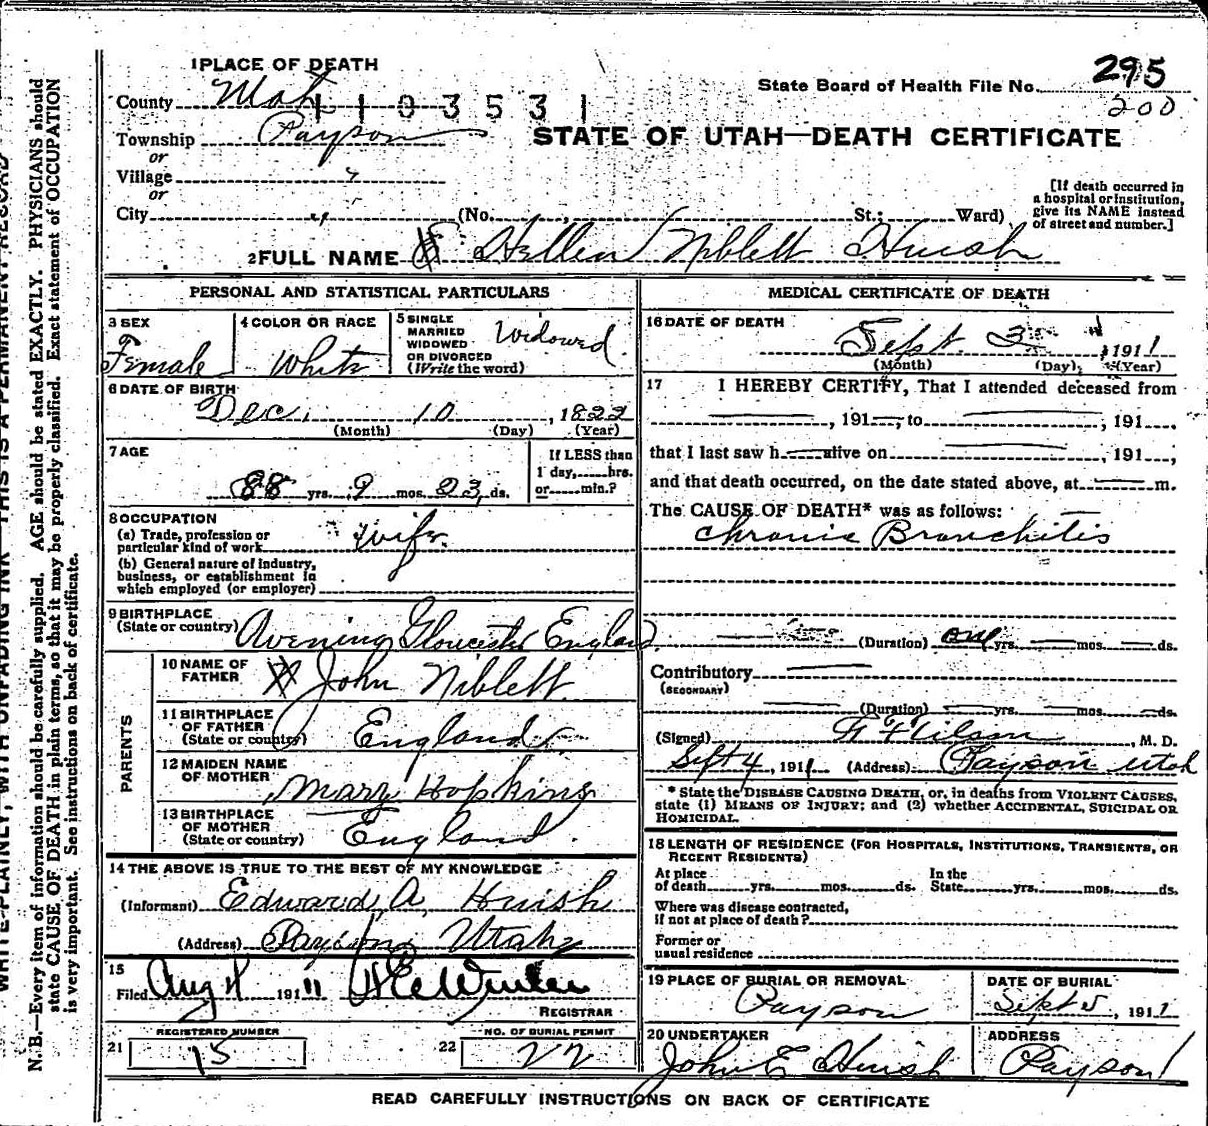 1 PLACE OF DEATH
County Utah
1 1 0 3 5 3 1
Township Payson
or
Village "
or
City " (No. , St.; Ward)
State Board of Health File No. 295
200
STATE OF UTAH—DEATH CERTIFICATE
[If death occurred in
a hospital or institution,
give its NAME instead
of street and number.]
2 FULL NAME Hellen Niblett Huish
PERSONAL AND STATISTICAL PARTICULARS
3 SEX
Female
4 COLOR OR RACE
White
5 SINGLE
MARRIED
WIDOWED
OR DIVORCED
(Write the word)
Widowed
6 DATE OF BIRTH
Dec. 10, 1822
(Month) (Day) (Year)
7 AGE
88 yrs. 9 mos. 23 ds.
If LESS than
1 day, hrs.
or min.?
8 OCCUPATION
(a) Trade, profession or
particular kind of work Wife
(b) General nature of industry,
business, or establishment in
which employed (or employer)
9 BIRTHPLACE
(State or country) Avening Gloucester England
PARENTS
10 NAME OF
FATHER John Niblett
11 BIRTHPLACE
OF FATHER
(State or country) England
12 MAIDEN NAME
OF MOTHER Mary Hopkins
13 BIRTHPLACE
OF MOTHER
(State or country) England.
14 THE ABOVE IS TRUE TO THE BEST OF MY KNOWLEDGE
(Informant) Edward A. Huish
(Address) Payson Utah
15
Filed Aug 4 1911
REGISTRAR
REGISTERED NUMBER
21 15
NO. OF BURIAL PERMIT
22 22
MEDICAL CERTIFICATE OF DEATH
16 DATE OF DEATH
Sept. 3 1911
(Month) (Day) (Year)
17 I HEREBY CERTIFY, That I attended deceased from
, 191 , to , 191 ,
that I last saw h alive on , 191 ,
and that death occurred, on the date stated above, at m.
The CAUSE OF DEATH* was as follows:
Chronic Bronchitis
(Duration) one yrs. mos. ds.
Contributory
(SECONDARY)
(Duration) yrs. mos. ds.
(Signed) , M. D.
Sept 4, 1911 (Address) Payson Utah
* State the DISEASE CAUSING DEATH, or, in deaths from VIOLENT CAUSES,
state (1) MEANS OF INJURY; and (2) whether ACCIDENTAL, SUICIDAL OR
HOMICIDAL.
18 LENGTH OF RESIDENCE (FOR HOSPITALS, INSTITUTIONS, TRANSIENTS, OR
RECENT RESIDENTS)
At place
of death yrs. mos. ds.
In the
State yrs. mos. ds.
Where was disease contracted,
if not at place of death?
Former or
usual residence
19 PLACE OF BURIAL OR REMOVAL
Payson
DATE OF BURIAL
Sept 5, 1911
20 UNDERTAKER
John E Huish
ADDRESS
Payson
READ CAREFULLY INSTRUCTIONS ON BACK OF CERTIFICATE
WRITE PLAINLY, WITH UNFADING INK—THIS IS A PERMANENT RECORD
N. B.—Every item of information should be carefully supplied. AGE should be stated EXACTLY. PHYSICIANS should
state CAUSE OF DEATH in plain terms, so that it may be properly classified. Exact statement of OCCUPATION
is very important. See instructions on back of certificate.